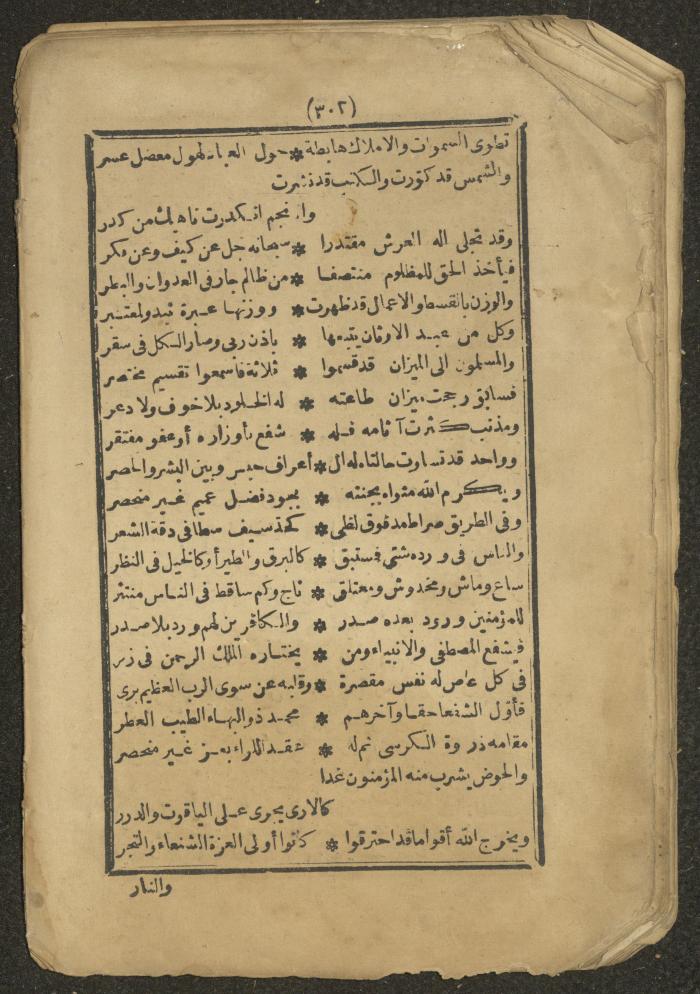 (٣٠٢)
تطوى السموات والاملاك هابطة * حول العباد لهول معضل عسر
والشمس قد كورت والكتب قد نشرت
وانجم انكدرت ناهيك من كدر
وقد تجلى اله العرش مقتدرا * سبحانه جل عن كيف وعن فكر
فيأخذ الحق للمظلوم منتصفا * من ظالم جار فى العدوان والبطر
والوزن بالقسط والاعمال قد ظهرت * ووزنها عبرة تبدو لمعتبر
وكل من عبد الاوثان يتبعها * باذن ربى وصار الكل فى سقر
والمسلمون الى الميزان قد قسموا * ثلاثة فاسمعوا تقسيم مختصر
فسابق رجحت ميزان طاعته * له الخلود بلا خوف ولا ذعر
ومذنب كثرت آثامه فله * شفع بأوزاره أو عفو مفتقر
وواحد قد تساوت حالتاه له ال * أعراف حبس وبين البشر والحصر
ويكرم الله مثواه بجنته * بجود فضل عميم غير منحصر
وفى الطريق صراط مد فوق لظى * كحد سيف سطا فى دقة الشعر
والناس فى ورده شتى فستبق * كالبرق والطير أو كالخيل فى النظر
ساع وماش ومخدوش ومعتلق * ناج وكم ساقط فى الناس منتثر
للمؤمنين ورود بعده صدر * والكافرين لهم ورد بلا صدر
فيشفع المصطفى والانبياء ومن * يختاره الملك الرحمن فى زمر
فى كل عاص له نفس مقصرة * وقلبه عن سوى الرب العظيم برى
فأول الشفعا حقا وآخرهم * محمد ذو البهاء الطيب العطر
مقامه ذروة الكرسى ثم له * عقد اللواء بعز غير منحصر
والحوض يشرب منه المؤمنون غدا
كالارى يجرى على الياقوت والدرر
ويخرج الله أقواما قد احترقوا * كانوا أولى العزة الشنعاء والنجر
والنار